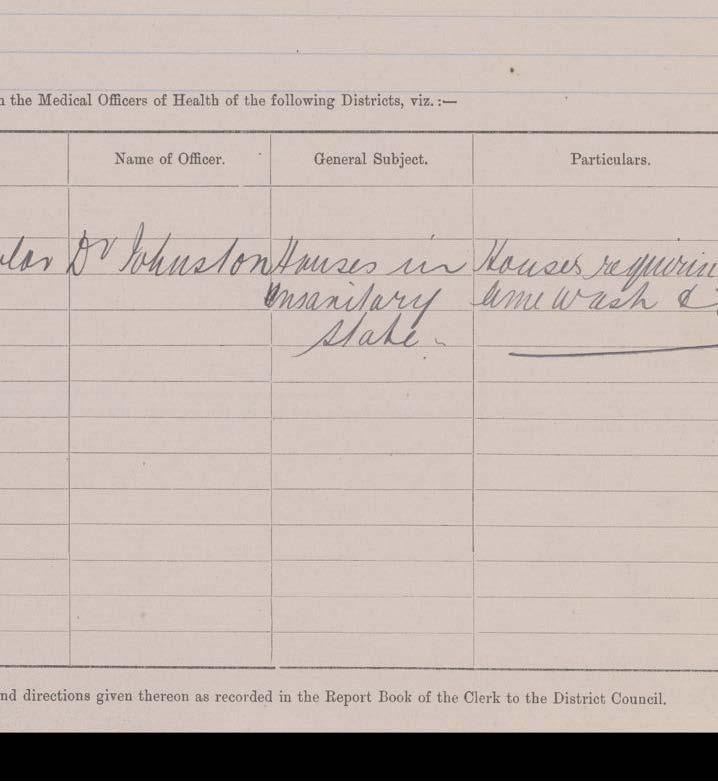 the Medical Officers of Health of the following Districts, viz.:—
Name of Officer. General Subject. Particulars.
Dr Johnston Houses in Houses requirin
insanitary lime wash &
state.
nd directions given thereon as recorded in the Report Book of the Clerk to the District Council.